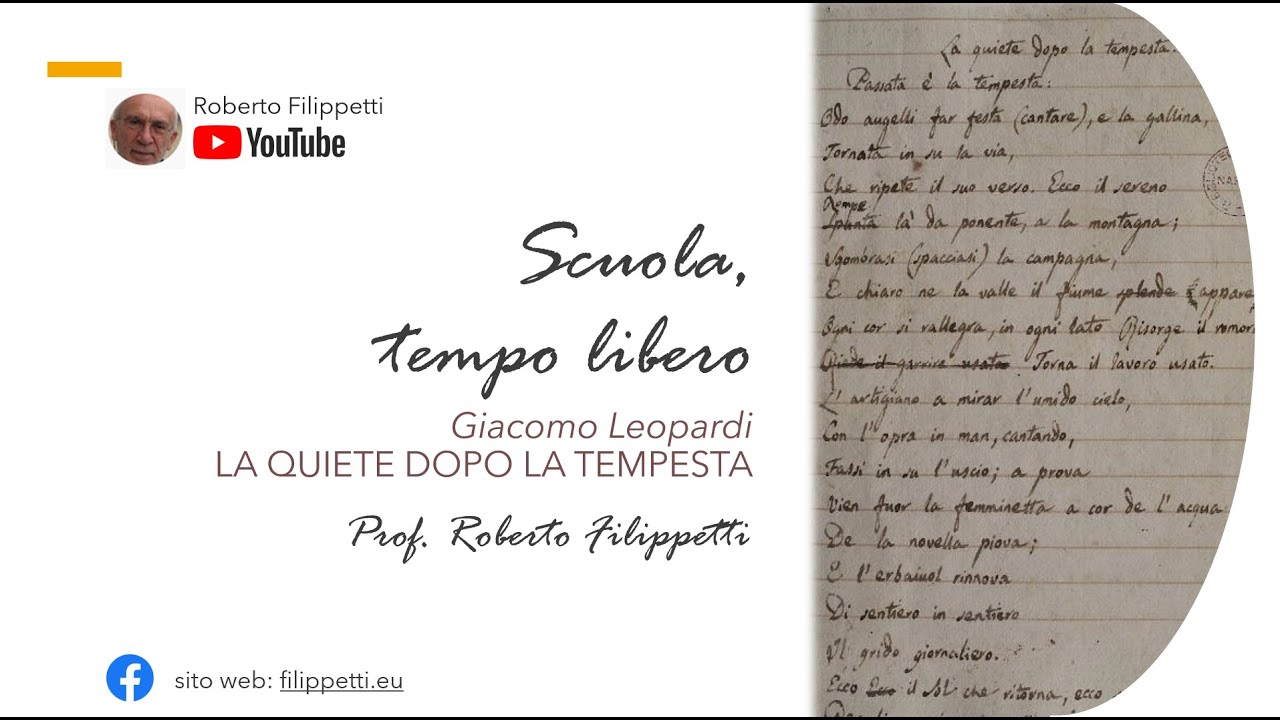 Roberto Filippetti
YouTube
Scuola,
tempo libero
Giacomo Leopardi
LA QUIETE DOPO LA TEMPESTA
Prof. Roberto Filippetti
sito web: filippetti.eu
La quiete dopo la tempesta.
Passata è la tempesta:
Odo augelli far festa (cantare), e la gallina,
Tornata in su la via,
Che ripete il suo verso. Ecco il sereno
Rompe
Spunta là da ponente, a la montagna;
Sgombrasi (spacciasi) la campagna,
E chiaro ne la valle il fiume splende appare
Ogni cor si rallegra, in ogni lato Risorge il romor
garrire usato Torna il lavoro usato.
L'artigiano a mirar l'umido cielo,
Con l'opra in man, cantando,
Fassi in su l'uscio; a prova
Vien fuor la femminetta a cor de l'acqua
De la novella piova;
E l'erbaiuol rinnova
Di sentiero in sentiero
Il grido giornaliero.
Ecco Ecco il Sol che ritorna, ecco